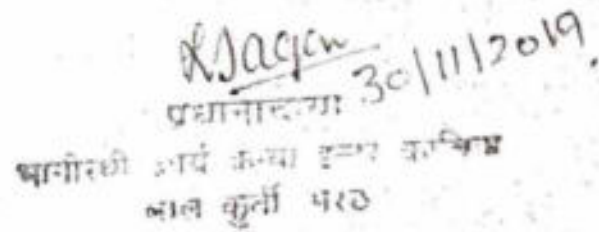 30/11/2019
प्रधानाचार्या
भागीरथी आर्य कन्या इन्टर कालिज
लाल कुर्ती मेरठ